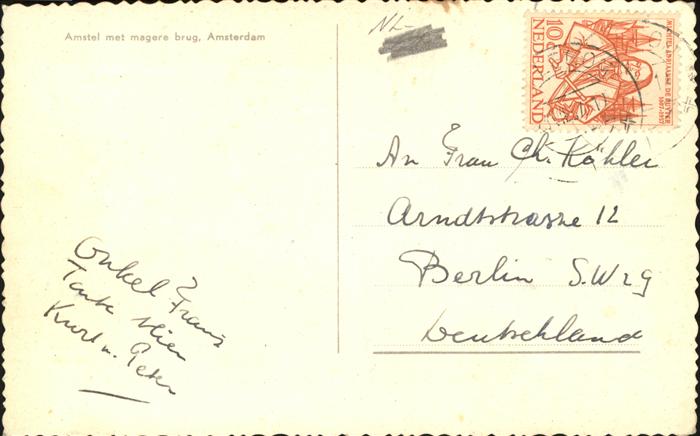 Amstel met magere brug, Amsterdam
NL-
10
NEDERLAND
MICHIEL ADRIAANSZ DE RUYTER
1607-1957
An Frau Ch. Köhler
Arndtstrasse 12
Berlin S.W 29
Deutschland
Onkel Frans
Tante Mien
Kurt u. Peter